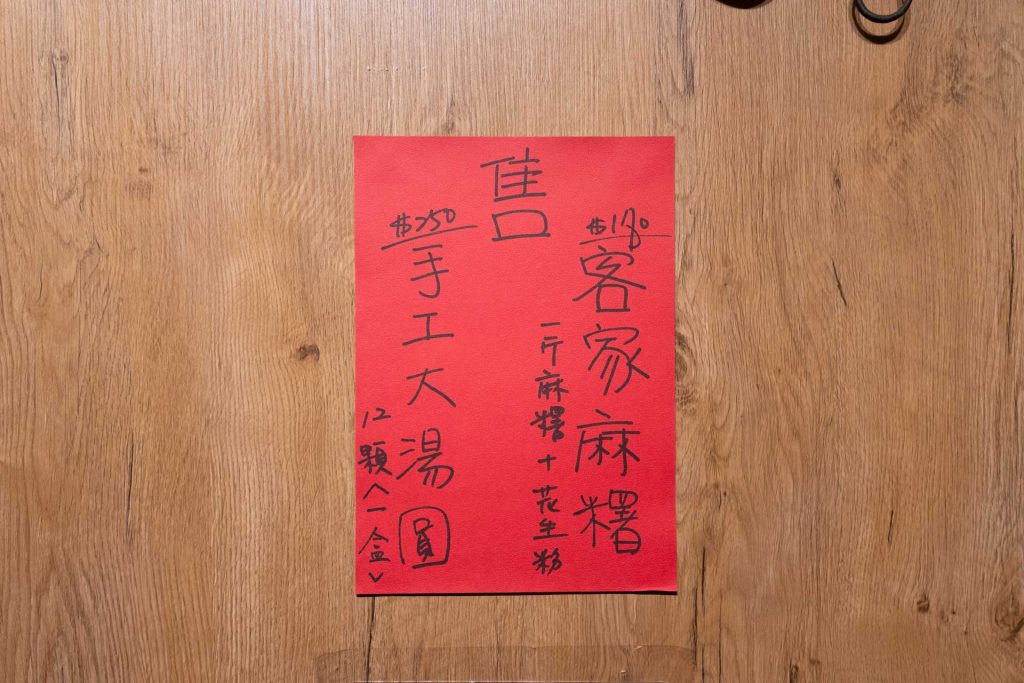 售
$180
客家麻糬
一斤麻糬+花生粉
$250
手工大湯圓
12顆(一盒)